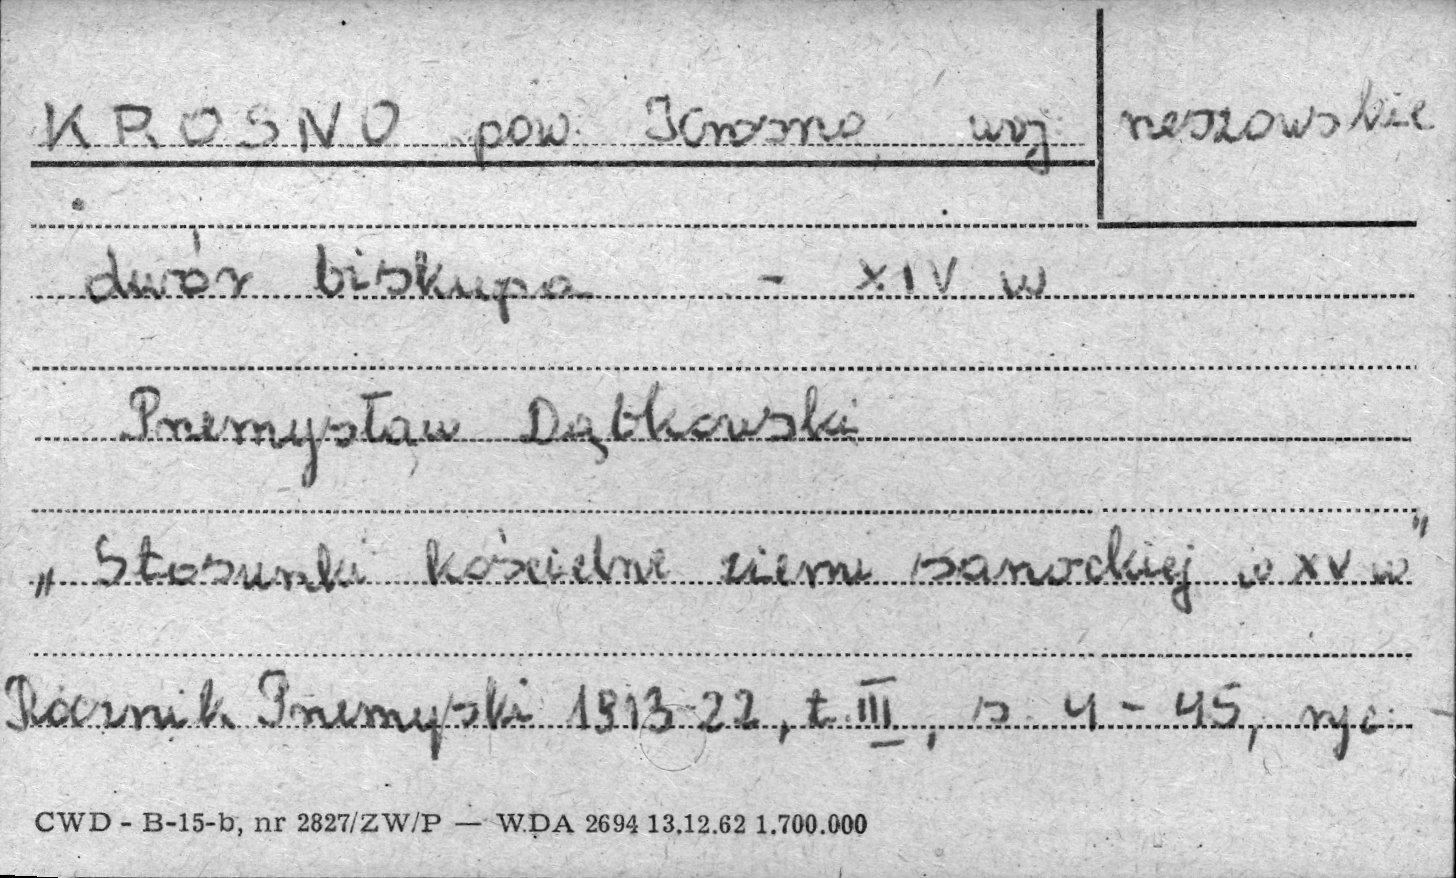 KROSNO pow. Krosno, woj. rzeszowskie
dwór biskupa - XIV w
Przemysław Dąbkowski
„Stosunki kościelne ziemi sanockiej w XV w"
Rocznik Przemyski 1913-22, t. III, s. 4-45, ryc. -
CWD - B-15-b, nr 2827/ZW/P — WDA 2694 13.12.62 1.700.000